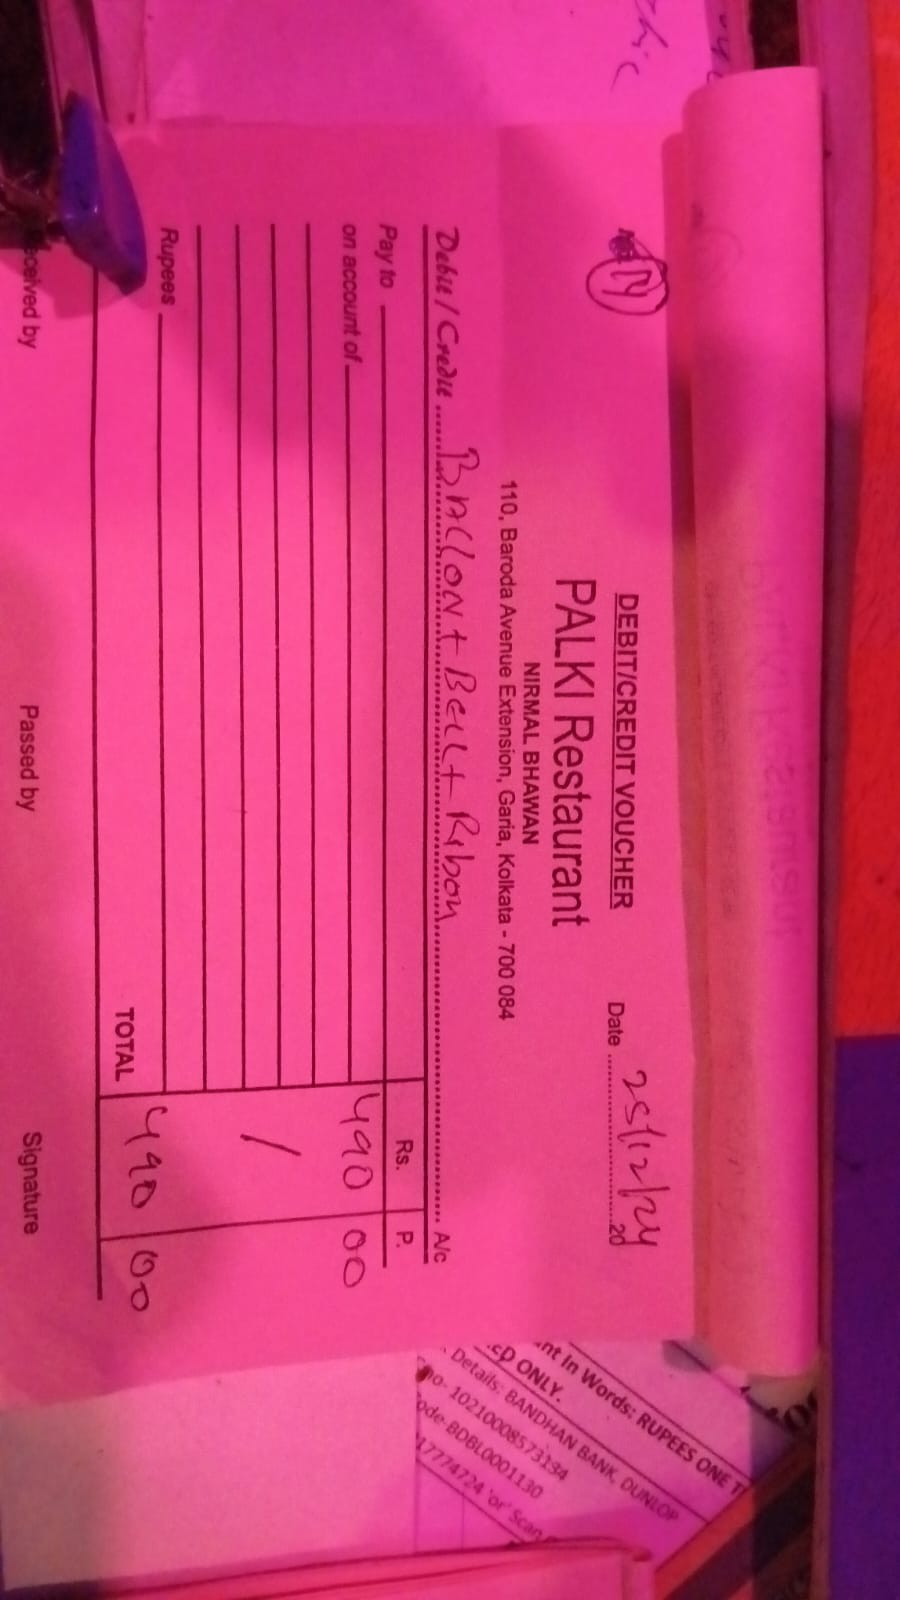 DEBIT/CREDIT VOUCHER
14
Date 25/12/24 20
PALKI Restaurant
NIRMAL BHAWAN
110, Baroda Avenue Extension, Garia, Kolkata - 700 084
Debit / Credit Ballon + Bell + Ribon A/c
Rs. P.
Pay to
on account of 490 00
Rupees
TOTAL 490 00
ceived by Passed by Signature
nt In Words: RUPEES ONE T
ED ONLY.
Details: BANDHAN BANK, DUNLOP
no- 10210008573134
ode-BDBL0001130
17774724 'or' Scan